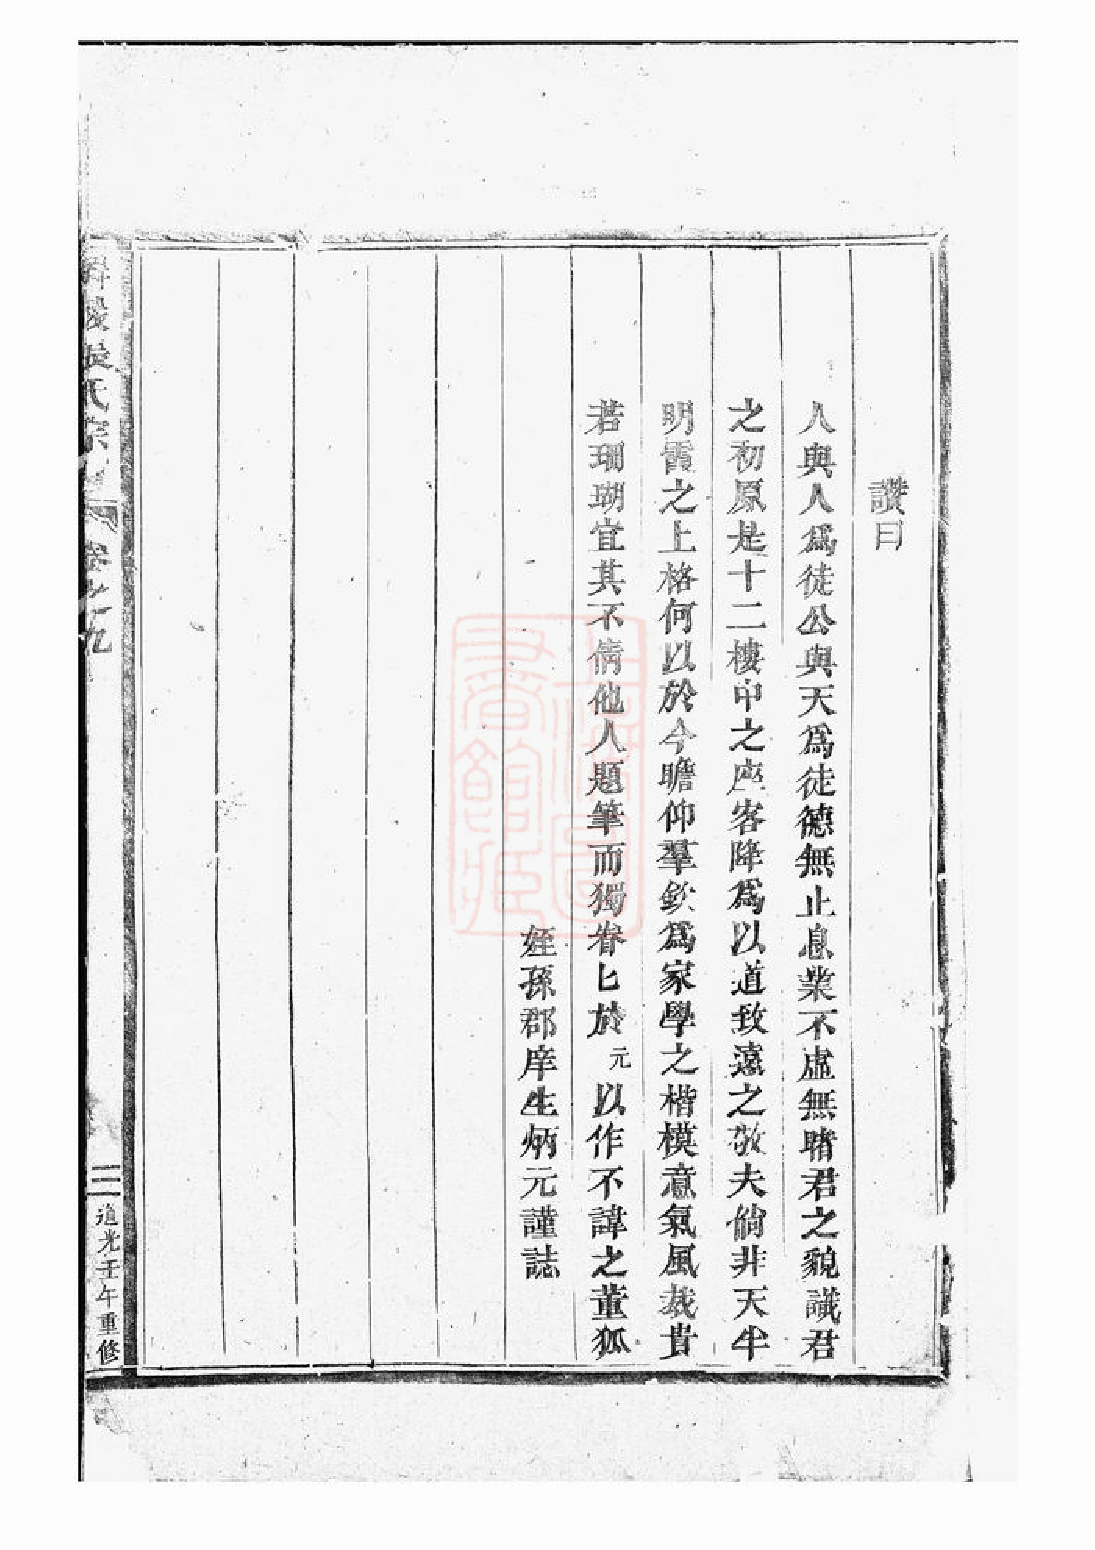 讚曰
人與人爲徒公與天爲徒德無止息業不虛無睹君之貌識君
之初原是十二樓中之座客降爲以道致遠之敬夫倘非天半
明霞之上格何以於今瞻仰羣欽爲家學之楷模意氣風裁貴
若珊瑚宜其不倩他人題筆而獨眷匕於元以作不諱之董狐
姪孫郡庠生炳元謹誌
氏宗
卷之九
三
道光壬午重修
上海圖書館藏